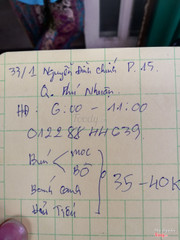 33/1 Nguyễn Đình Chính P. 15.
Q. Phú Nhuận.
HĐ: 6:00 - 11:00
01228844039
Bún < mọc
bò
Bánh Canh
Hủ Tiếu
35-40K